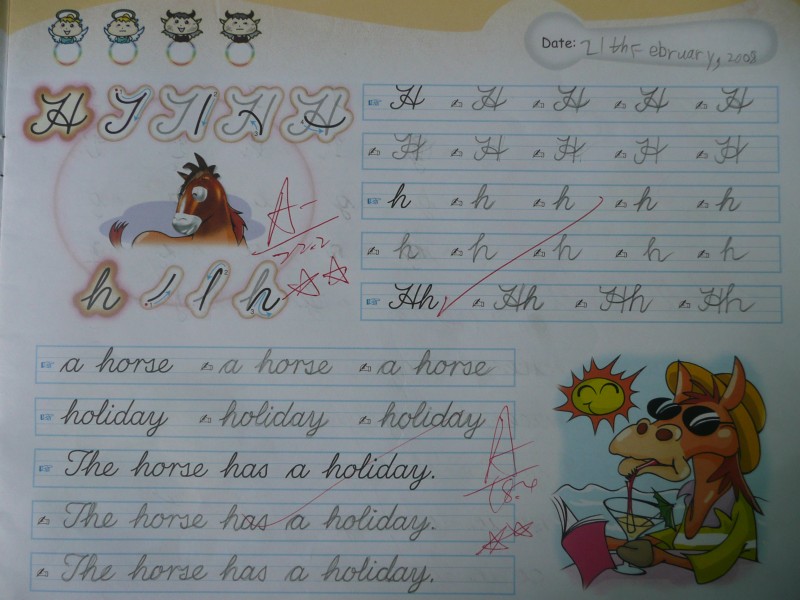 Date: 21th February, 2008
H J J I H H
H H H H H
H H H H H
h h h h h
A-
h h h h h
h l h
Hh Hh Hh Hh
a horse a horse a horse
holiday holiday holiday
The horse has a holiday.
A
The horse has a holiday.
The horse has a holiday.